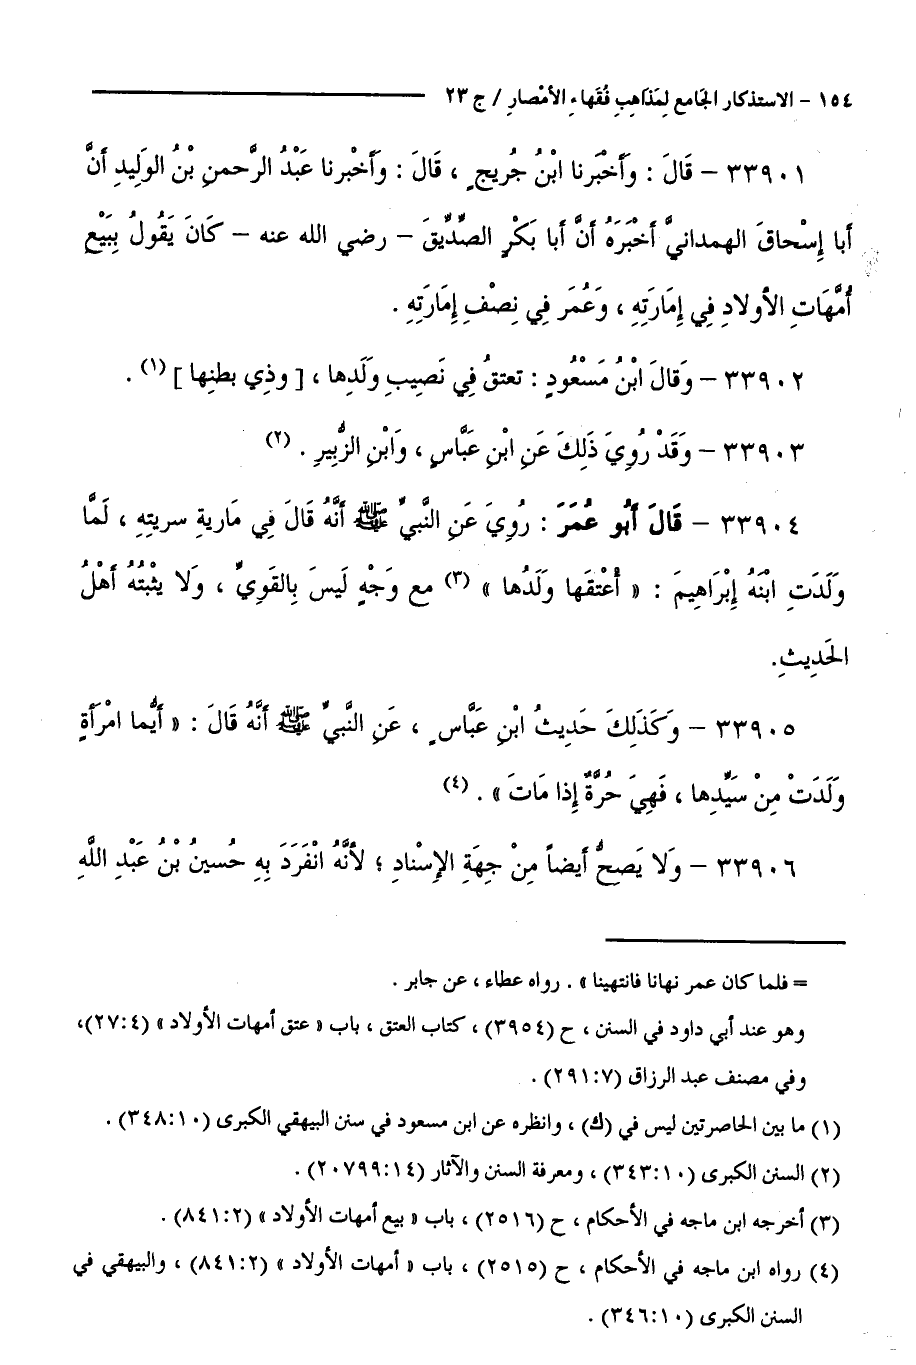 ١٥٤ - الاستذكار الجَامع لِمَذاهِبِ فُقَهاءِ الأمْصارِ / ج ٢٣
٣٣٩٠١ - قَالَ : وأَخْبَرنا ابْنُ جُريجٍ ، قَالَ : وأَخْبرنا عَبْدُ الرَّحمنِ بْنُ الوَلِيدِ أنَّ
أبا إِسْحاقَ الهمدانيَّ أخْبَرَهُ أنَّ أبا بَكْرٍ الصِّدِّيقَ - رضي الله عنه - كَانَ يَقُولُ بِبَيْعِ
أُمَّهَاتِ الأولادِ فِي إِمَارَتِهِ ، وَعُمَر فِي نِصْفِ إِمَارَتِهِ .
٣٣٩٠٢ - وَقالَ ابْنُ مَسْعُودٍ : تعتقُ فِي نَصِيبِ ولَدِها ، [ وذِي بطنِها ] (١) .
٣٣٩٠٣ - وَقَدْ رُوِيَ ذَلِكَ عَنِ ابْنِ عَبَّاسٍ ، وَابْنِ الزُّبيرِ . (٢)
٣٣٩٠٤ - قَالَ أَبُو عُمَرَ : رُوِيَ عَنِ النَّبيِّ ﷺ أَنَّهُ قَالَ فِي مَاريةِ سريتِهِ ، لَمَّا
وَلَدَتِ ابْنَهُ إِبْرَاهِيمَ : « أعْتَقَها ولَدُها » (٣) مع وَجْهٍ لَيسَ بِالقَويِّ ، ولَا يثْبتُهُ أهْلُ
الحَدِيثِ.
٣٣٩٠٥ - وَكَذَلِكَ حَدِيثُ ابْنِ عَبَّاسٍ ، عَنِ النَّبيِّ ﷺ أَنَّهُ قَالَ : « أَيُّما امْرأَةٍ
وَلَدَتْ مِنْ سَيِّدِها ، فَهِيَ حُرَّةٌ إِذا مَاتَ » . (٤)
٣٣٩٠٦ - ولَا يَصِحُّ أيضاً مِنْ جِهَةِ الإِسْنادِ ؛ لأَنَّهُ انْفَرَدَ بِهِ حُسينُ بْنُ عَبْدِ اللَّهِ
= فلما كان عمر نهانا فانتهينا » . رواه عطاء ، عن جابر .
وهو عند أبي داود في السنن ، ح (٣٩٥٤) ، كتاب العتق ، باب « عتق أمهات الأولاد » (٢٧:٤)،
وفي مصنف عبد الرزاق (٢٩١:٧) .
(١) ما بين الحاصرتين ليس في (ك) ، وانظره عن ابن مسعود في سنن البيهقي الكبرى (٣٤٨:١٠) .
(٢) السنن الكبرى (٣٤٣:١٠) ، ومعرفة السنن والآثار (٢٠٧٩٩:١٤) .
(٣) أخرجه ابن ماجه في الأحكام ، ح (٢٥١٦) ، باب « بيع أمهات الأولاد » (٨٤١:٢) .
(٤) رواه ابن ماجه في الأحكام ، ح (٢٥١٥) ، باب « أمهات الأولاد » (٨٤١:٢) ، والبيهقي في
السنن الكبرى (٣٤٦:١٠) .